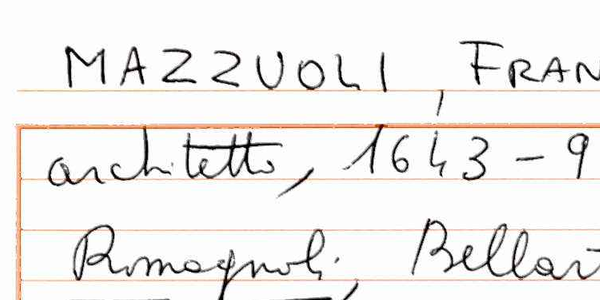 MAZZUOLI, FRAN
architetto, 1643-9
Romagnoli, Bellar